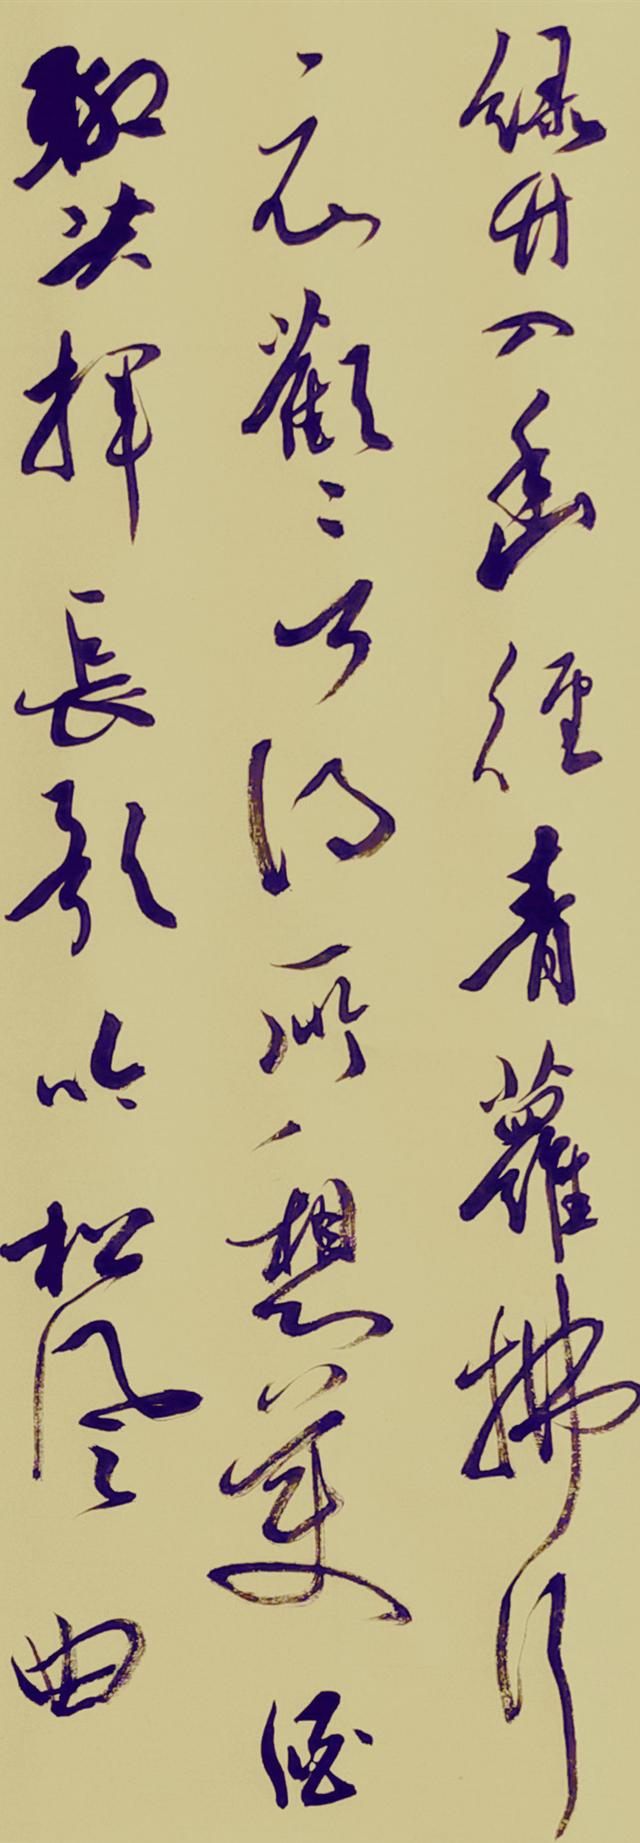 绿竹入幽徑青蘿拂行
衣歡言得所憩美酒
聊共揮長歌吟松風曲